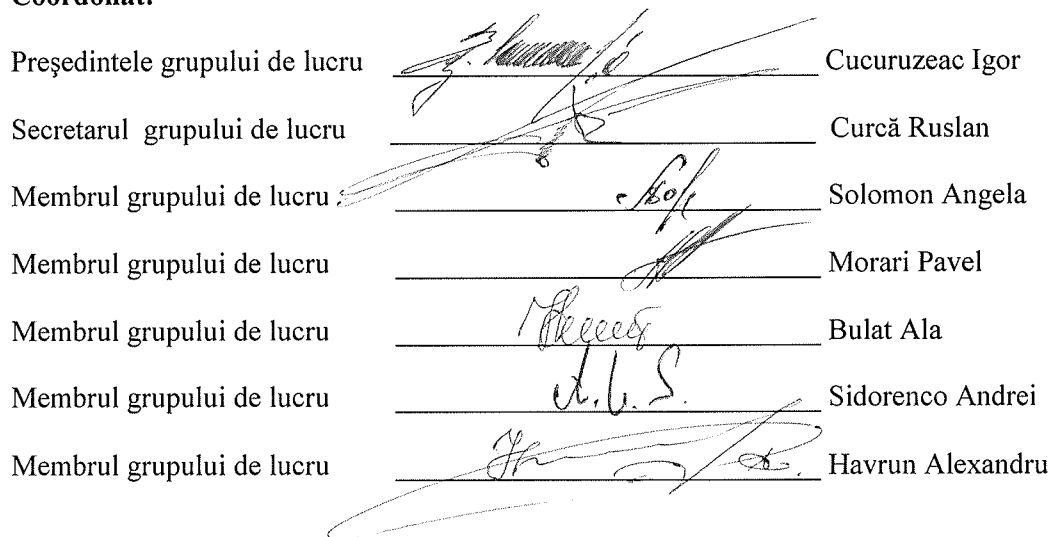 Coordonat:
Preşedintele grupului de lucru Cucuruzeac Igor
Secretarul grupului de lucru Curcă Ruslan
Membrul grupului de lucru Solomon Angela
Membrul grupului de lucru Morari Pavel
Membrul grupului de lucru Bulat Ala
Membrul grupului de lucru Sidorenco Andrei
Membrul grupului de lucru Havrun Alexandru